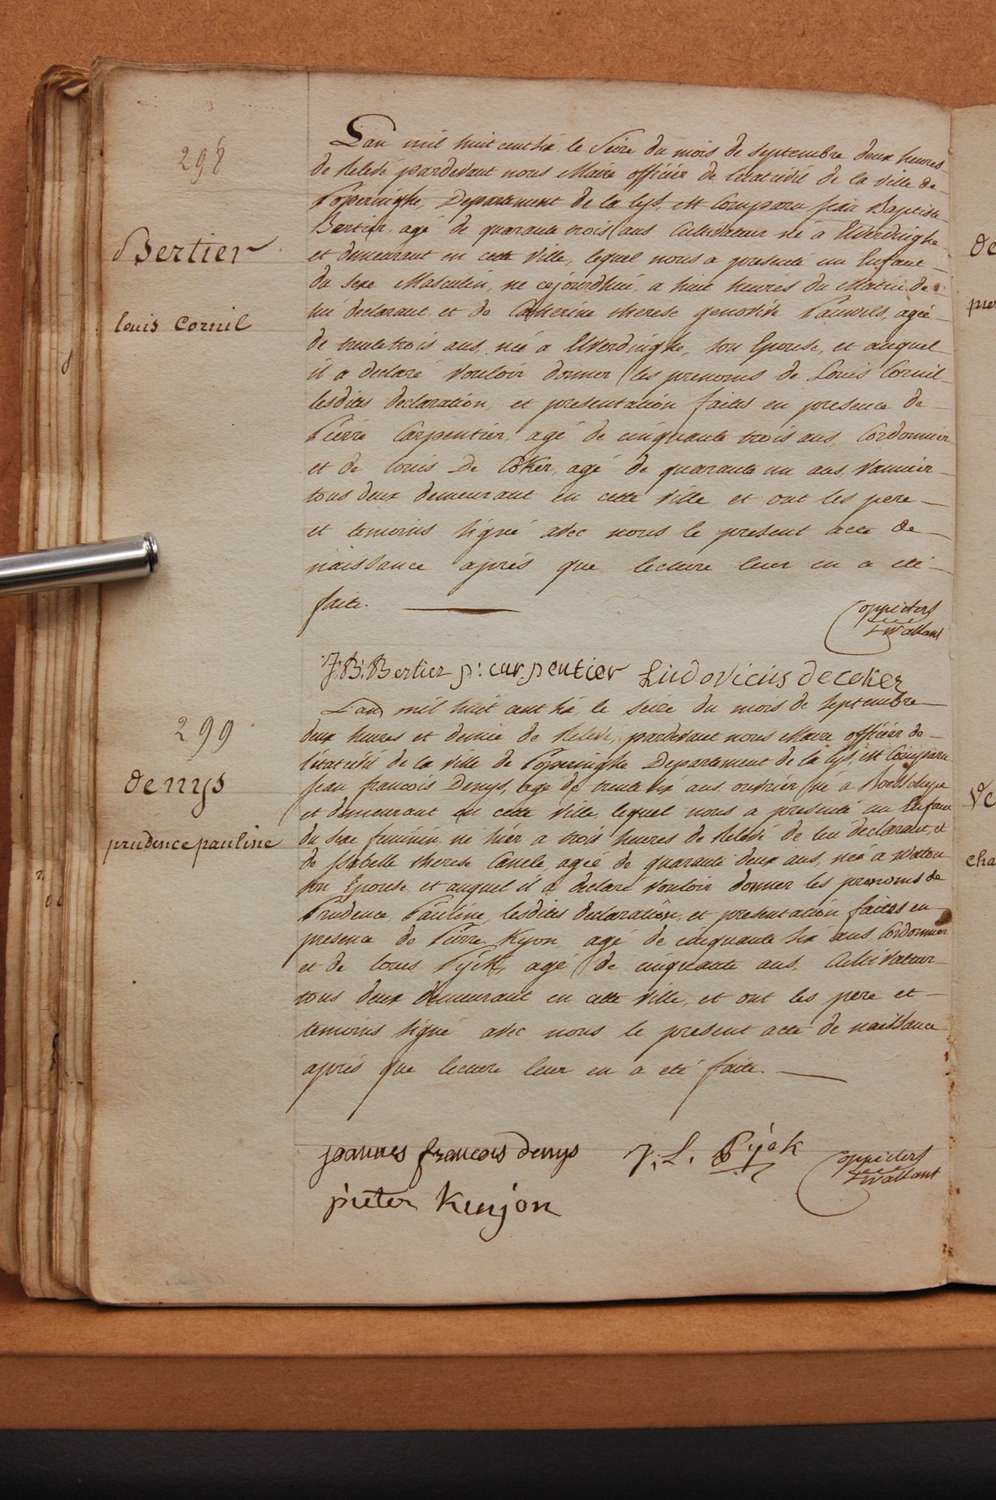 298
Bertier
louis Cornil
L'an mil huit cent six le Seize du mois de Septembre deux heures
de Relevé pardevant nous Maire officier de l'état civil de la ville de
Poperinghe, Departement de la lys, est Comparu Jean Baptiste
Bertier, agé de quarante trois ans Cultivateur né a Elverdinghe
et demeurant en cette Ville, lequel nous a presenté un Enfant
du sexe Masculin, né cejourdhui a huit heures du Matin de
lui declarant et de Catherine therese Pauwels, agée
de trente trois ans, née a Elverdinghe, son Epouse, et auquel
il a declaré Vouloir donner les prenoms de Louis Cornil
lesdites declaration, et presentation faites en presence de
Pierre Carpentier, agé de cinquante trois ans, Cordonnier
et de louis De Coker, agé de quarante un ans, Vannier
tous deux demeurant en cette Ville et ont les pere
et temoins signé avec nous le present acte de
naissance aprés que lecture leur en a eté
faite.
J: B: Bertier p: carpentier Ludovicus decoker
299
denys
prudence pauline
L'an mil huit cent six le seize du mois de Septembre
deux heures et demie de Relevé, pardevant nous Maire officier de
l'état civil de la ville de Poperinghe Departement de la lys, est Comparu
Jean francois Denys, agé de trente six ans ouvrier né a
et demeurant en cette Ville, lequel nous a presenté un Enfant
du sexe feminin né hier a trois heures de Relevé de lui declarant, et
de Isabelle therese agée de quarante deux ans, née a Watou
son Epouse et auquel il a declaré vouloir donner les prenoms de
Prudence Pauline, lesdites declaration, et presentation faites en
presence de Pierre Kyon agé de cinquante six ans Cordonnier
et de louis Pyck, agé de cinquante ans, Cultivateur
tous deux demeurant en cette ville, et ont les pere et
temoins signé avec nous le present acte de naissance
aprés que lecture leur en a eté faite.
joannes francois denys J. L. Pijck
pieter Kenjon